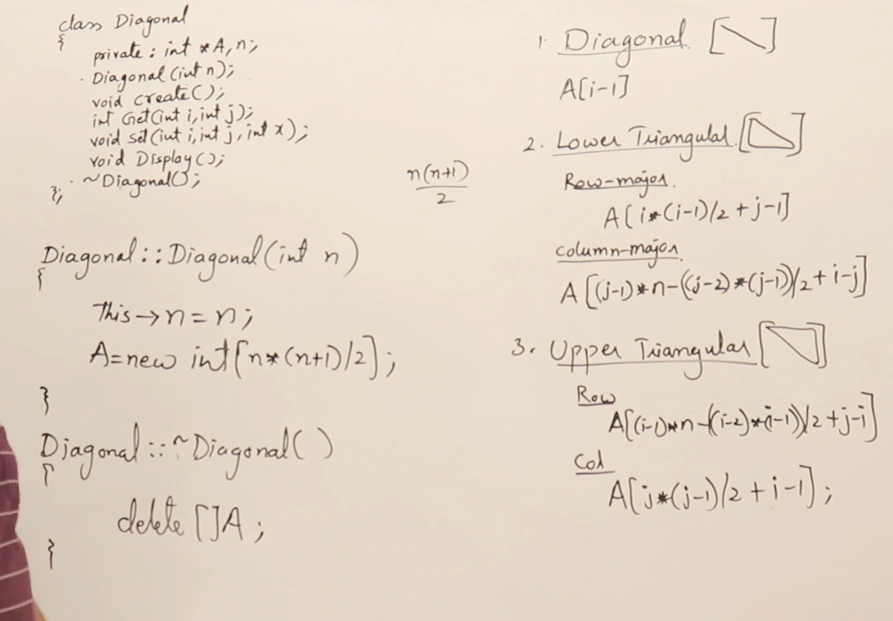 class Diagonal
{
private: int *A, n;
Diagonal(int n);
void create();
int Get(int i, int j);
void set(int i, int j, int x);
void Display();
~Diagonal();
};
n(n+1)
2
Diagonal::Diagonal(int n)
{
This→n=n;
A=new int[n*(n+1)/2];
}
Diagonal::~Diagonal()
{
delete []A;
}
1. Diagonal
A[i-1]
2. Lower Triangular
Row-major
A[i*(i-1)/2+j-1]
Column-major
A[(j-1)*n-((j-2)*(j-1))/2+i-j]
3. Upper Triangular
Row
A[(i-1)*n-((i-2)*(i-1))/2+j-i]
Col
A[j*(j-1)/2+i-1];